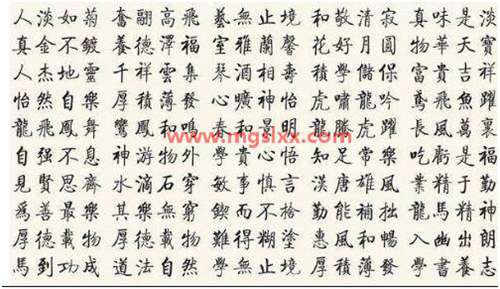 人淡如菊 奮翮高飛 藝無止境 和敬清寂 真味是淡
真金不鍍 養德澤福 室雅蘭馨 花好月圓 物華天寶
人杰地靈 千祥雲集 琴酒相壽 學儲保 富貴吉祥
怡然自樂 厚積薄發 心曠神怡 虎嘯龍吟 鳶飛魚躍
龍飛鳳舞 鸞鳳和鳴 春和景明 龍騰虎躍 長風萬裏
www.mgslxx.com
自強不息 神游物外 賞心 知足常樂 吃虧是福
見賢思齊 水滴石穿 敏事慎言 漢唐雄風 業精于勤
爲善最樂 其樂無窮 鍥而不捨 勤能補拙 龍馬精神
厚德載物 難得糊塗 惠風和暢 入幽出朗
馬到功成 道法自然 學無止境 厚積薄發 學書養志